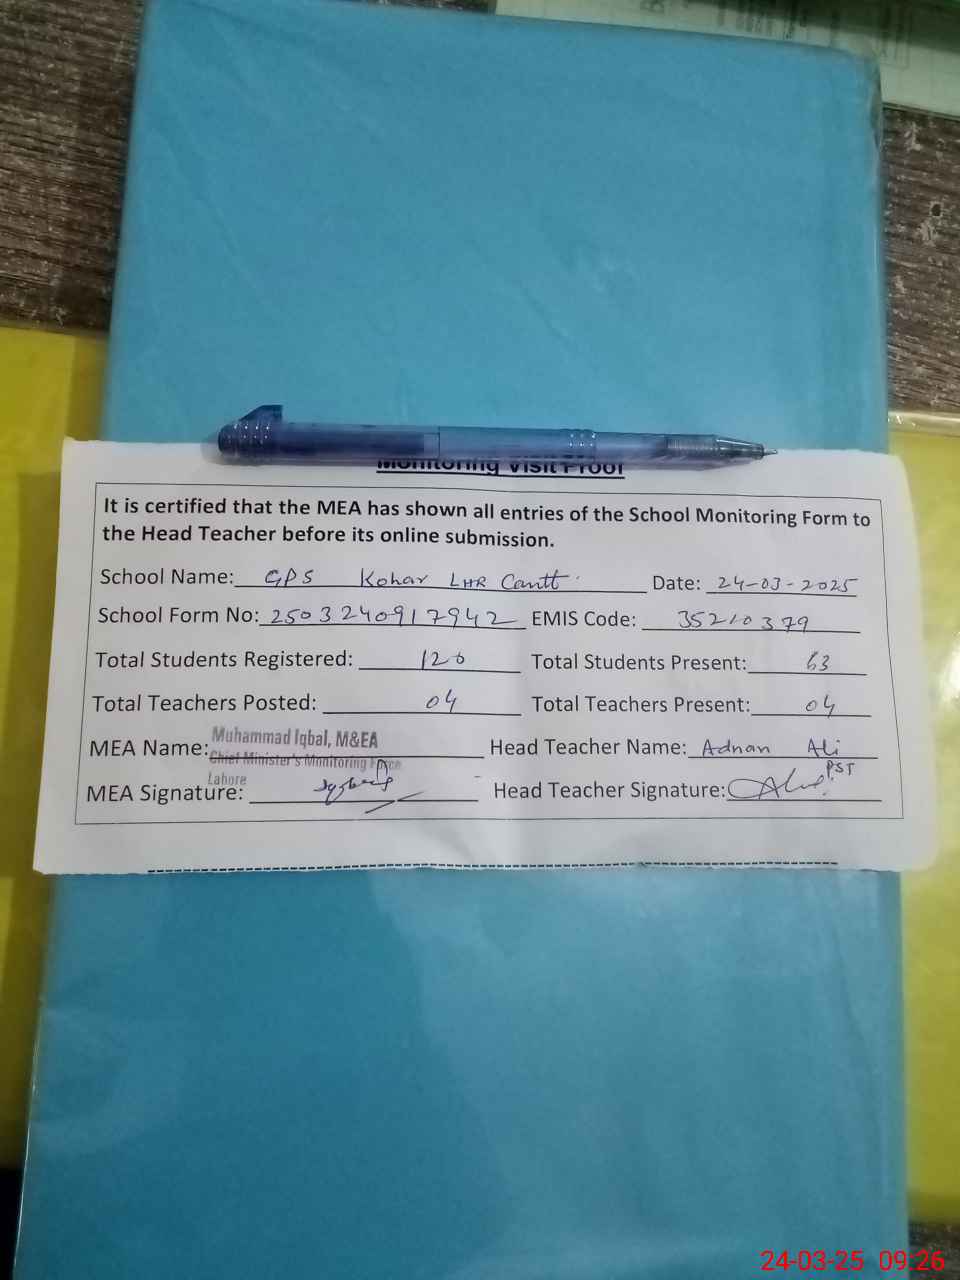 Monitoring Visit Proof
It is certified that the MEA has shown all entries of the School Monitoring Form to
the Head Teacher before its online submission.
School Name: GPS Kohar LHR Cantt Date: 24-03-2025
School Form No: 250324091 7942 EMIS Code: 35210379
Total Students Registered: 120 Total Students Present: 63
Total Teachers Posted: 04 Total Teachers Present: 04
MEA Name: Muhammad Iqbal, M&EA Head Teacher Name: Adnan Ali
Chief Minister's Monitoring Force
Lahore
PST
MEA Signature: Head Teacher Signature:
24-03-25 09:26